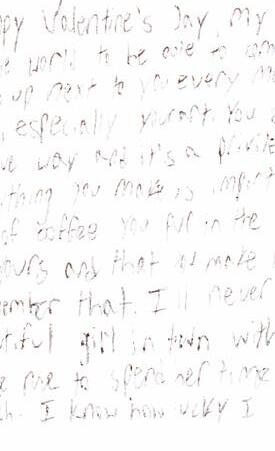 ppy Valentine's Day, my
e world to be able to com
up next to you every m
, especially your art. You
ve way and it's a privile
thing you make is import
of coffee you put in the
yours and that you make
ember that. I'll never
tiful girl in town with
e me to spend her time
ch. I know how lucky I